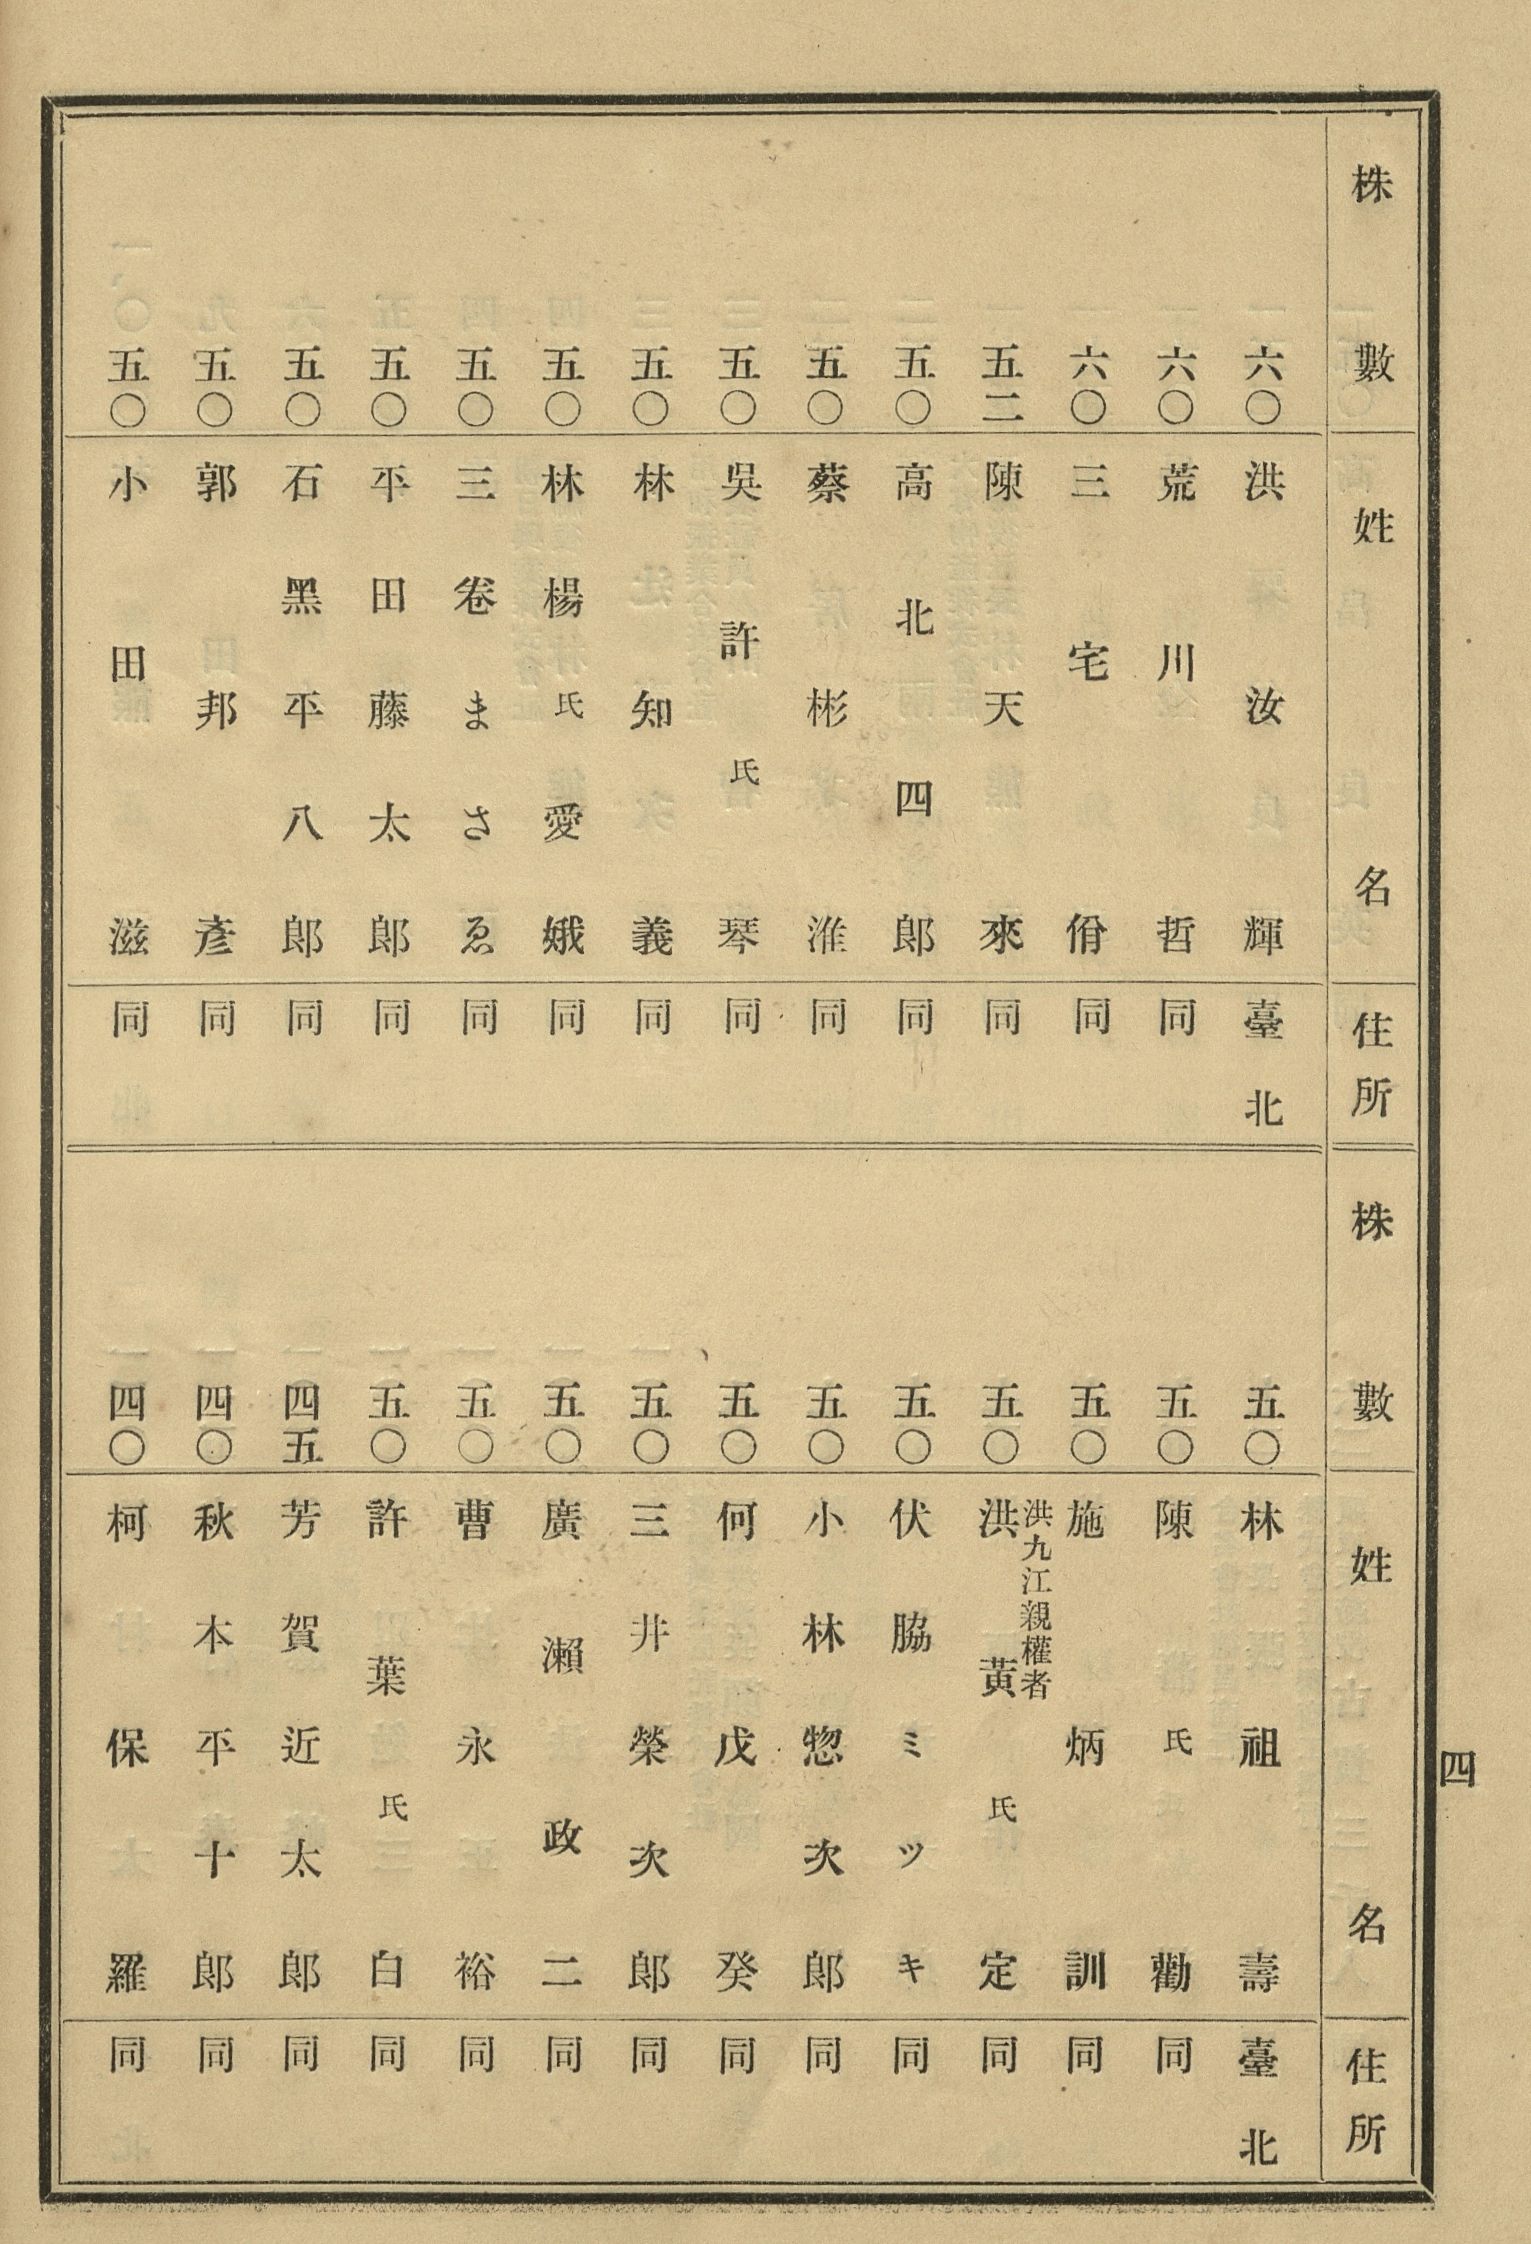 株數 姓名 住所
六〇 洪汝輝 臺北
六〇 荒川哲 同
六〇 三宅佾 同
五二 陳天來 同
五〇 高北四郎 同
五〇 蔡彬淮 同
五〇 吳許氏琴 同
五〇 林知義 同
五〇 林楊氏愛娥 同
五〇 三卷まさゑ 同
五〇 平田藤太郎 同
五〇 石黑平八郎 同
五〇 郭邦彥 同
五〇 小田滋 同
株數 姓名 住所
五〇 林祖壽 臺北
五〇 陳氏勸 同
五〇 施炳訓 同
五〇 洪九江親權者 洪黃氏定 同
五〇 伏脇ミツキ 同
五〇 小林惣次郎 同
五〇 何戊癸 同
五〇 三井榮次郎 同
五〇 廣瀨政二 同
五〇 曹永裕 同
五〇 許葉氏白 同
四五 芳賀近太郎 同
四〇 秋本平十郎 同
四〇 柯保羅 同
四